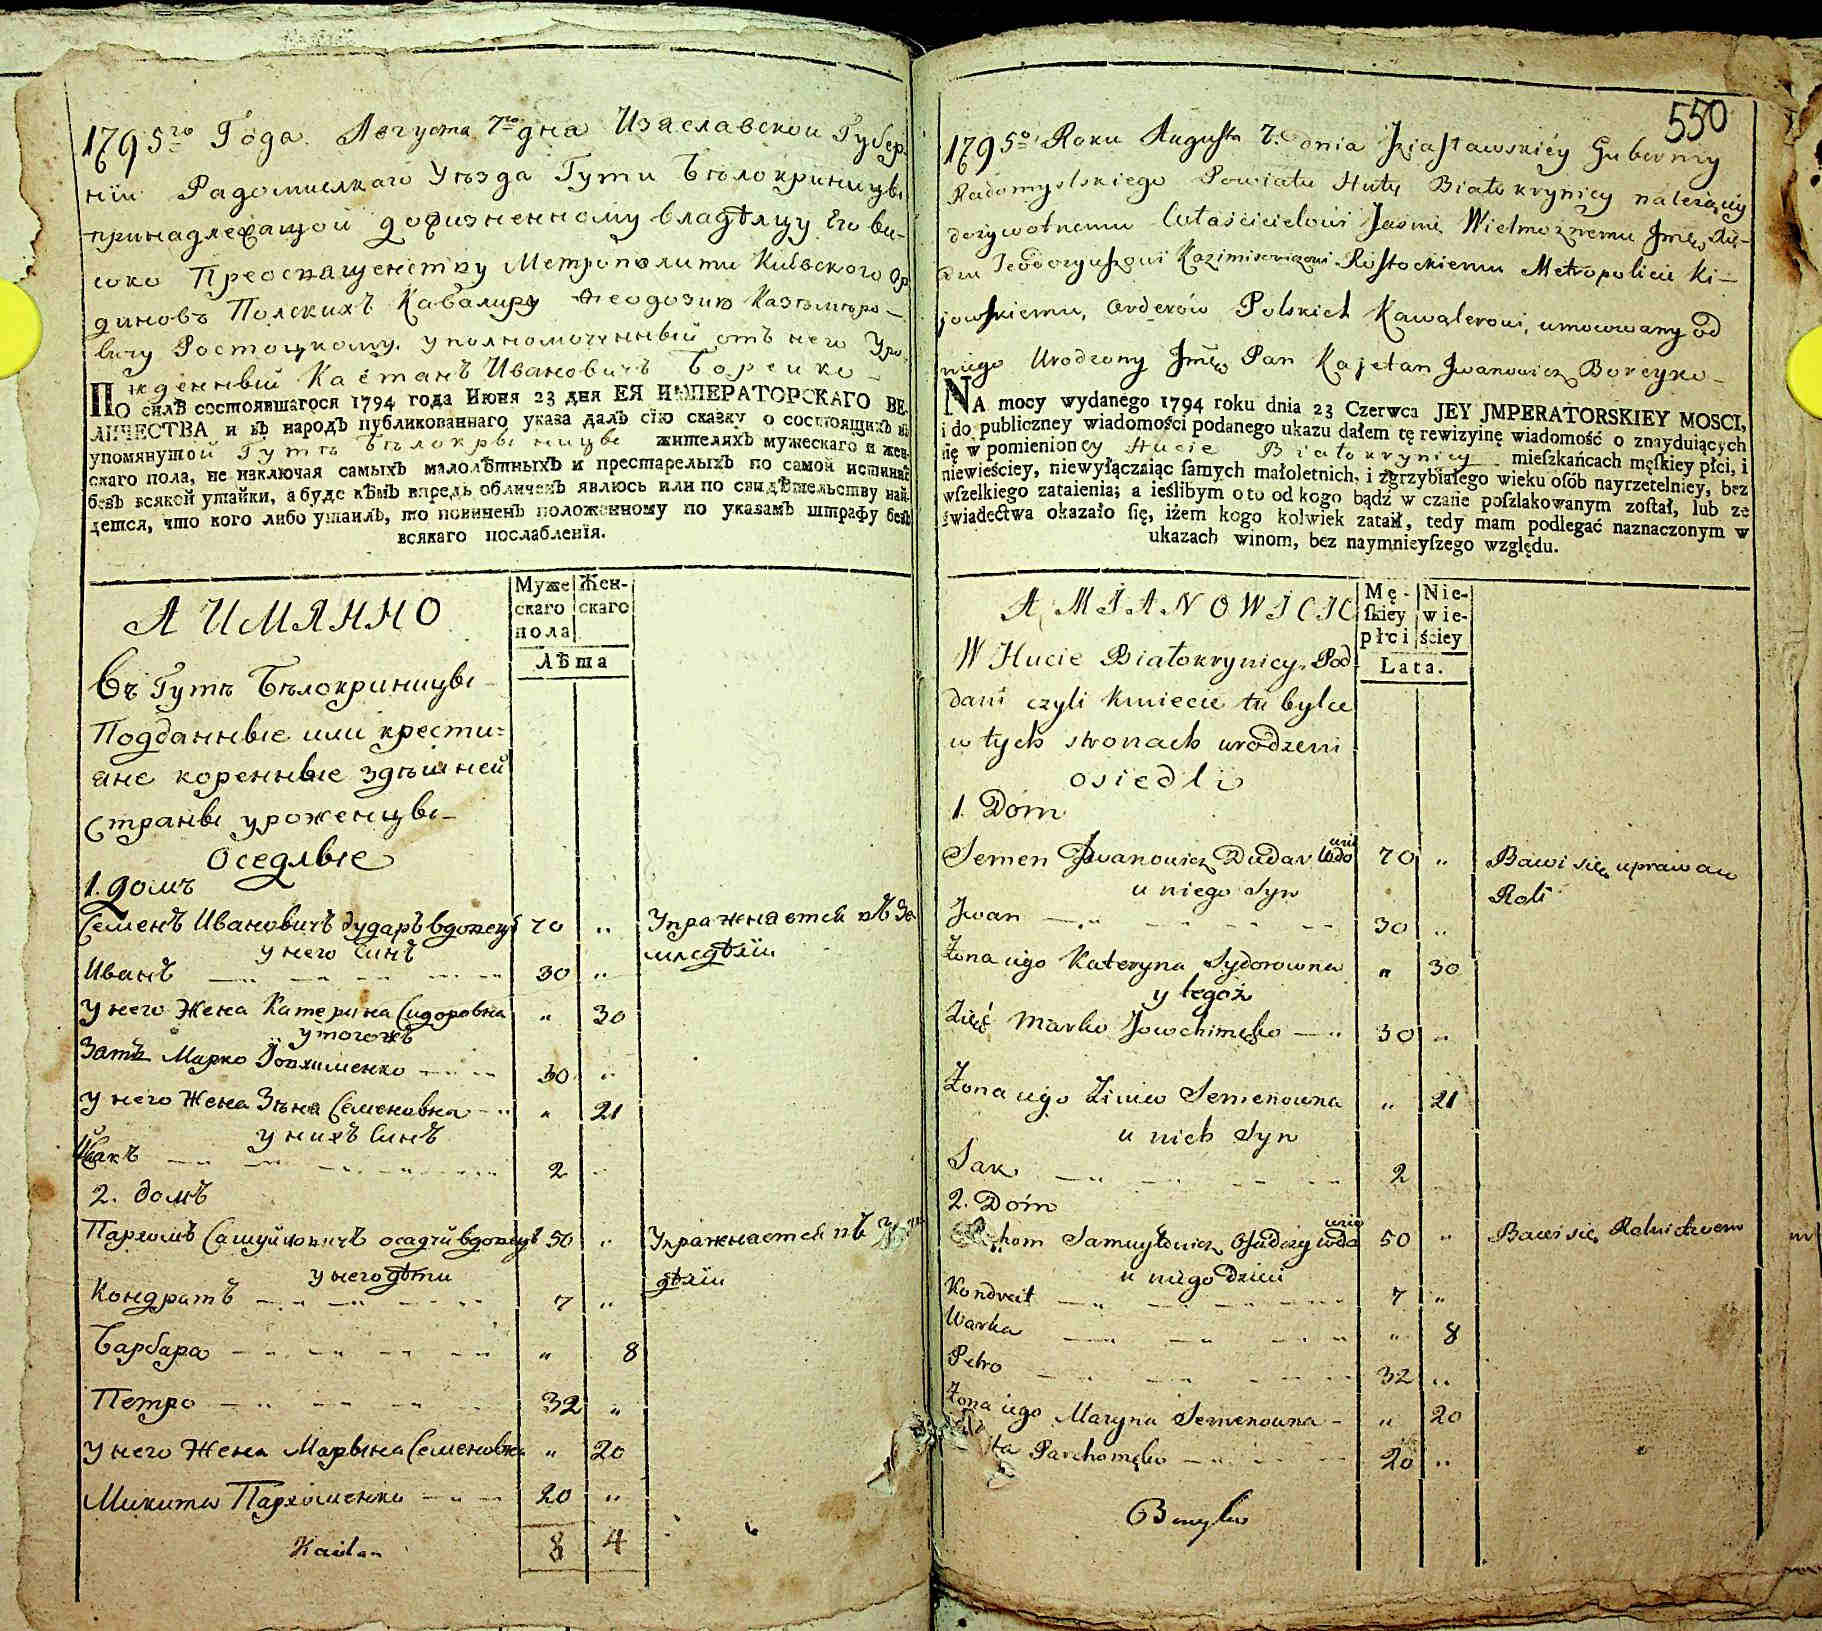 1795го Года Августа 7го дна Изаславской Губер-
ніи Радомислкаго Уѣзда Гути Бѣлокриницы
принадлежащой дожизненному владѣлцу Его Ви-
соко Преосвященству Метрополити Киевского Ор
диновъ Полскихъ Кавалиру Феодозию Казѣмиро-
вичу Ростоцкому. уполномоченный отъ него Уро-
жденный Каетанъ Ивановичъ Борейко
ПО силѣ состоявшагося 1794 года Июня 23 дня ЕЯ ИМПЕРАТОРСКАГО ВЕ-
ЛИЧЕСТВА и въ народъ публикованнаго указа далъ сію сказку о состоящихъ въ
упомянутой Гутѣ Бѣлокрыницы жителяхъ мужескаго и жен-
скаго пола, не изключая самыхъ малолѣтныхъ и престарелыхъ по самой истиннѣ
безъ всякой утайки, а буде кѣмъ впредь обличенъ явлюсь или по свидѣтельству най-
дется, что кого либо утаилъ, то повиненъ положенному по указамъ штрафу безъ
всякаго послабленія.
А ИМЯННО
Муже
скаго
пола
Жен-
скаго
Лѣта
Въ Гутѣ Бѣлокриницы
Подданные или крести-
яне коренные здѣшней
Страны уроженцы-
Оседлые
1. домъ
Семенъ Ивановичъ Дударъ вдовецъ 70 „ Упражняется въ Зе
у него Синъ млѣдѣліи
Иванъ 30 „
у него Жена Катерина Сидоровна „ 30
у тогожъ
Зать Марко Йовхименко 30 „
у него Жена Зѣна Семеновна „ 21
у нихъ Синъ
Исакъ 2 „
2. домъ
Пархомъ Самуйловичъ осадчй вдовецъ 50 „ Упражнается въ
у него дѣти дѣліи
Кондратъ 7 „
Барбара „ 8
Петро 32 „
у него Жена Марына Семеновна „ 20
Микита Пархоменко 20 „
8 4
550
1795о Roku Augusta 7. dnia Jziasławskiey Gubernij
Radomyslskiego Powiatu Huty Białokrynicy należący
dożywotnemu Właścicielowi Jaśnie Wielmożnemu Jmę Xię-
dzu Teodozyuszowi Kazimirowiczowi Rostockiemu Metropolicie Ki-
jowskiemu, Orderów Polskich Kawalerowi, umocowany od
niego Urodzony Jmę Pan Kajetan Jwanowicz Boreyko
NA mocy wydanego 1794 roku dnia 23 Czerwca JEY JMPERATORSKIEY MOSCI,
i do publiczney wiadomości podanego ukazu dałem tę rewizyinę wiadomość o znayduiących
się w pomienioncy Hucie Białokrynicy mieſzkańcach męſkiey płci, i
niewieściey, niewyłączaiąc ſamych małoletnich, i zgrzybiałego wieku oſób nayrzetelniey, bez
wſzelkiego zataienia; a ieślibym o to od kogo bądź w czaſie poſzlakowanym zoſtał, lub ze
świadectwa okazało ſię, iżem kogo kolwiek zataił, tedy mam podlegać naznaczonym w
ukazach winom, bez naymnieyſzego względu.
A MIANOWICIE
Mę-
ſkiey
płci
Nie-
wie-
ściey
Lata.
W Hucie Białokrynicy. Pod-
dani czyli kmiecie tu bylce
w tych stronach urodzeni
osiedli
1. Dom
Semen Jwanowicz Dudar wdowiec 70 „ Bawi się uprawą
u niego Syn Roli
Jwan 30 „
Żona iego Kateryna Sydorowna „ 30
y tegoż
Zięć Marko Jowchimęko 30 „
Żona iego Ziniw Semenowna „ 21
u nich Syn
Sak 2
2. Dom
Parhom Samuyłowicz Osadczy wdowiec 50 „ Bawi się Rolnictwem
u niego dzieci
Kondrat 7 „
Warka „ 8
Petro 32 „
Żona iego Maryna Semenowna „ 20
ta Parchomęko 20 „